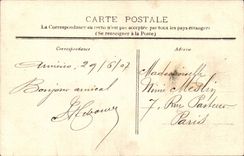 CARTE POSTALE
La Correspondance au recto n'est pas acceptée par tous les pays étrangers
(Se renseigner à la Poste)
Correspondance
Adresse
Amiens 29/6/07
Bonjour amical
Mademoiselle
Mimi Meslin
7, Rue Pasteur
Paris